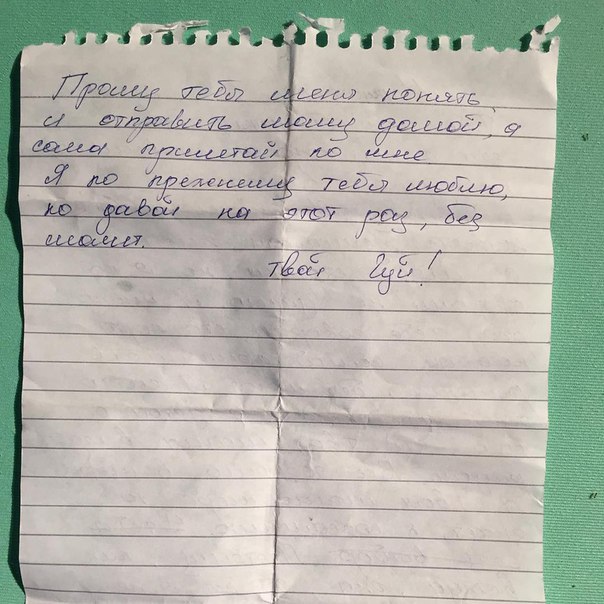 Прошу тебя меня понять,
и отправить маму домой, а
сама прилетай ко мне
Я по прежнему тебя люблю,
но давай на этот раз, без
мамы.
твой Гуй!